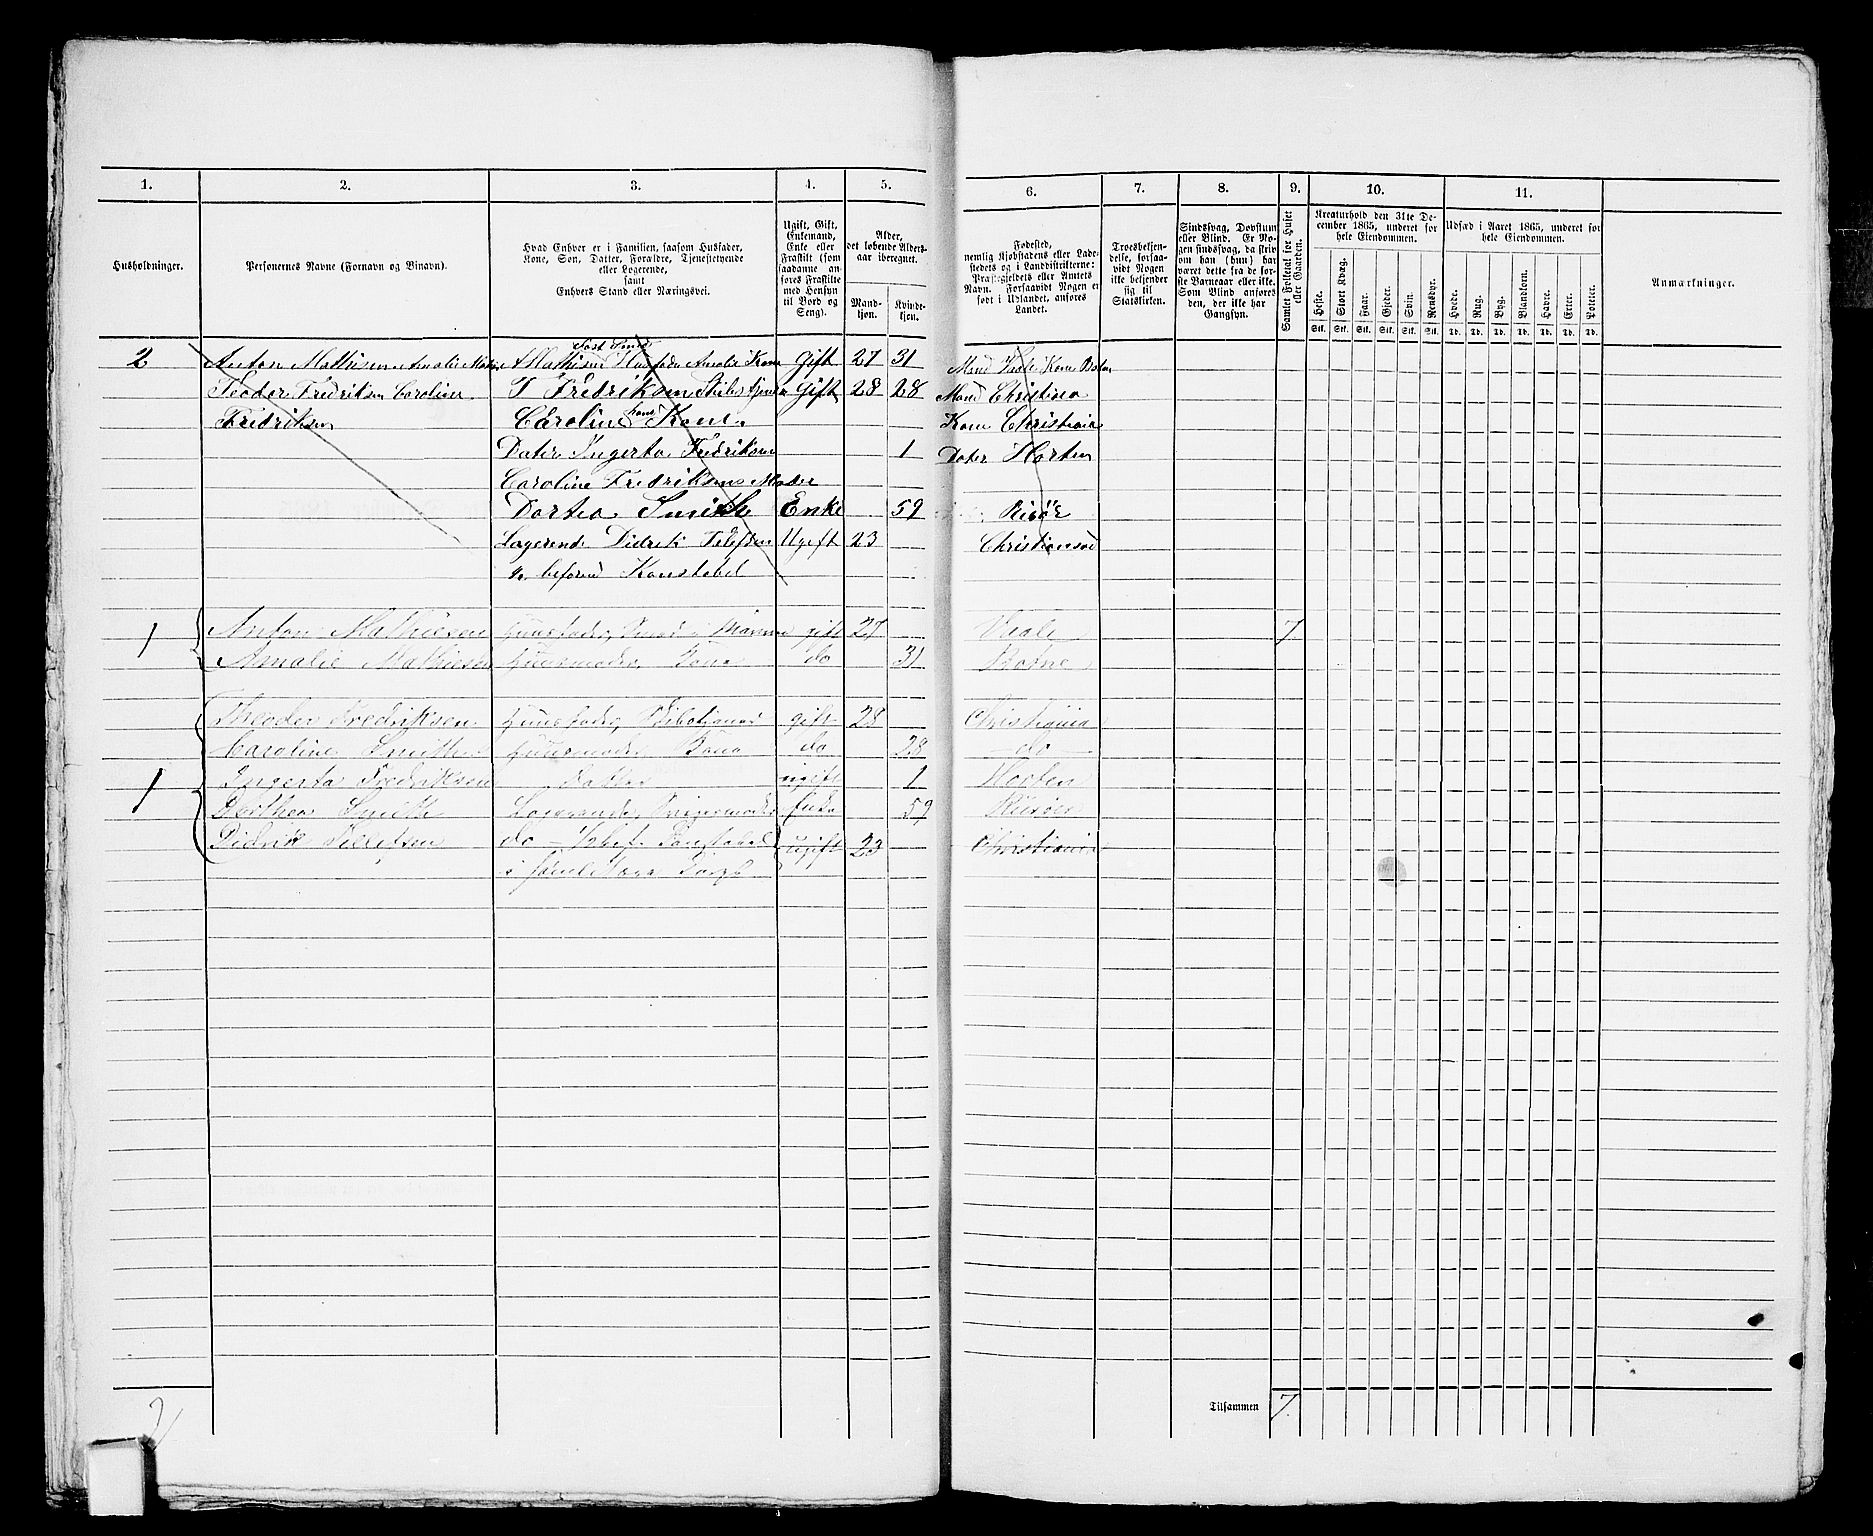 1. 2. 3. 4. 5. 6. 7. 8. 9. 10. 11.
Husholdninger.
Personernes Navne (Fornavn og Binavn).
Hvad Enhver er i Familien, saasom Husfader,
Kone, Søn, Datter, Forældre, Tjenestetyende
eller Logerende,
samt
Enhvers Stand eller Næringsvei.
Ugift, Gift,
Enkemand,
Enke eller
Fraskilt (som
saadanne an-
føres Fraskilte
med Hensyn
til Bord og
Seng).
Alder,
det løbende Alders-
aar iberegnet.
Mand-
kjøn.
Kvinde-
kjøn.
Fødested,
nemlig Kjøbstadens eller Lade-
stedets og i Landdistrikterne:
Præstegjeldets eller Amtets
Navn. Forsaavidt Nogen er
født i Udlandet, anføres
Landet.
Troesbekjen-
delse, forsaa-
vidt Nogen
ikke bekjender
sig til
Statskirken.
Sindssvag, Døvstum
eller Blind. Er No-
gen sindssvag, da skriv
om han (hun) har
været dette fra de før-
ste Barneaar eller ikke.
Som Blind anføres
den, der ikke har
Gangsyn.
Samlet Folketal for Huset
eller Gaarden.
Kreaturhold den 31te De-
cember 1865, underet for
hele Eiendommen.
Heste. Stort Kvæg. Faar. Gjeder. Svin. Rensdyr.
Stk. Stk. Stk. Stk. Stk. Stk.
Udsæd i Aaret 1865, underet for
hele Eiendommen.
Hvede. Rug. Byg. Blandkorn. Havre. Erter. Poteter.
Td. Td. Td. Td. Td. Td. Td.
Anmærkninger.
2 Anton Mathisen Amalie Mathisen A Mathisen Husfader Amalie Kone Gift 27 31 Mand Kone
Teodor Fredriksen Caroline T Fredriksen Gift 28 28 Mand Christiania
Fredriksen Caroline hans Kone Kone Christiania
Dater Ingerta Fredriksen 1 Dater Horten
Caroline Fredriksens Moder
Dortea Smith Enke 59 Risør
Logerend Didrik Tellefsen Ugift 23 Christiansand
Konstabel
1 Anton Mathiesen Huusfader, Smed i Marine gift 27 7
Amalie Mathiesen Huusmoder, Kone do 31
Theodor Fredriksen Huusfader, gift 28 Christiania
Caroline Smith Huusmoder Kone do 28 do
1 Ingerta Fredriksen Datter ugift 1 Horten
Dorthea Smith Logerende, Svigermoder Enke 59 Risøer
Didrik Tellefsen do Konstabel ugift 23 Christiania
2
Tilsammen 7.